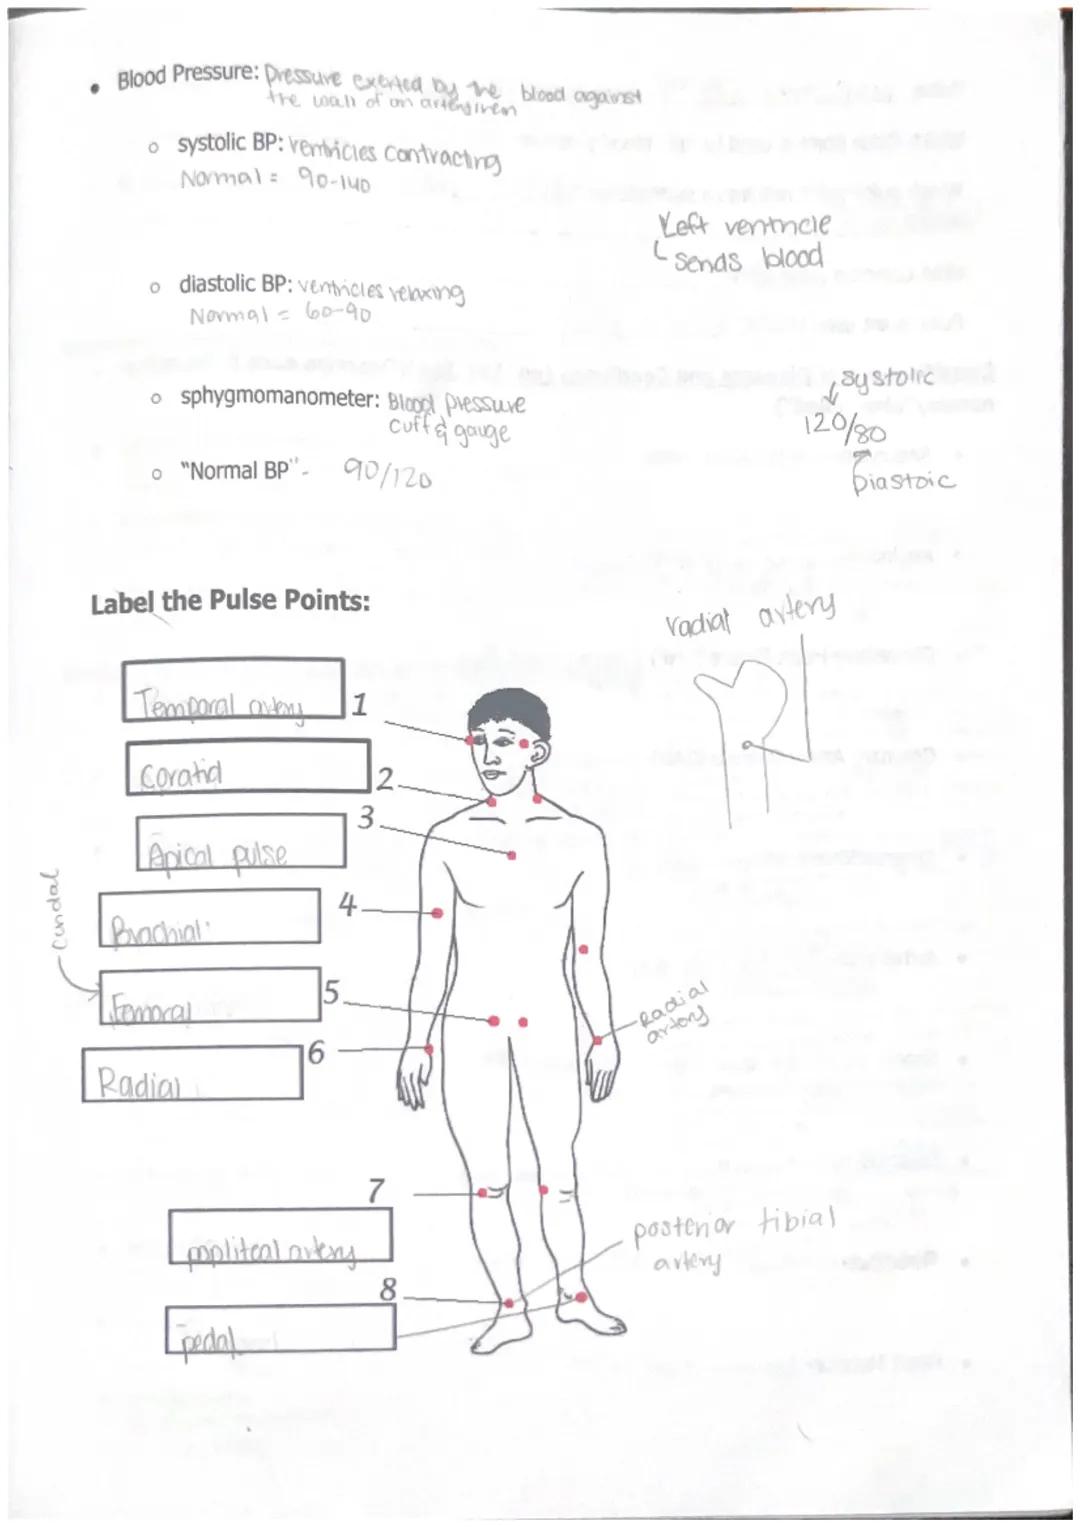 • Blood Pressure: Pressure exerted by the blood against
the wall of an artery
o systolic BP: Ventricles Contracting
Normal = 90-140
Left ventricle
sends blood
o diastolic BP: ventricles relaxing
Normal = 60-90
o sphygmomanometer: Blood pressure
cuff & gauge
systolic
120/80
Diastoic
o "Normal BP"- 90/120
Label the Pulse Points:
radial artery
Temporal artery 1
Coratid 2
3
Apical pulse
4
Brachial
5
Femoral
Radial
artery
6
Radial
7
popliteal artery
posterior tibial
artery
8
pedal